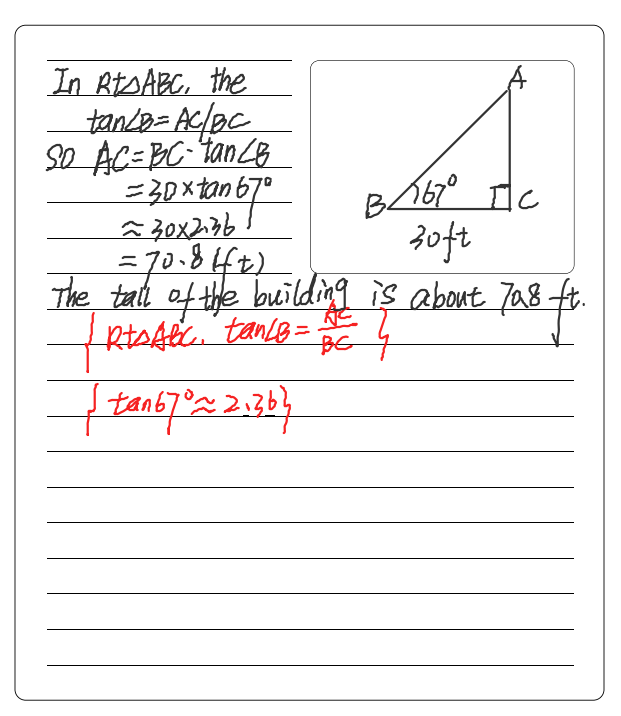 In Rt△ABC, the
tan∠B=AC/BC
SO AC=BC·tan∠B
=30×tan67°
≈30×2.36
=70.8(ft)
A
B
67°
C
30ft
The tall of the building is about 70.8 ft.
{Rt△ABC, tan∠B=AC/BC}
{tan67°≈2.36}